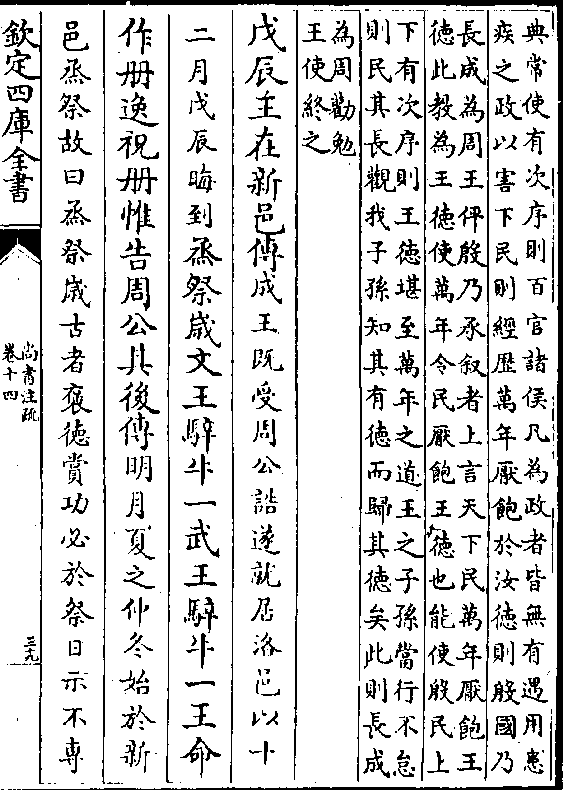 典常使有次序則百官諸侯凡為政者皆無有遇用患
疾之政以害下民則經歴萬年厭飽於汝徳則殷國乃
長成為周王伻殷乃承叙者上言天下民萬年厭飽王
徳此教為王徳使萬年令民厭飽王徳也能使殷民上
下有次序則王徳堪至萬年之道王之子孫當行不怠
則民其長觀我子孫知其有徳而歸其徳矣此則長成
為周勸勉
王使終之
戊辰王在新邑傳成王既受周公誥遂就居洛邑以十
二月戊辰晦到烝祭歲文王騂牛一武王騂牛一王命
作册逸祝册惟告周公其後傳明月夏之仲冬始於新
邑烝祭故曰烝祭歲古者褒徳賞功必於祭日示不專
欽定四庫全書
尚書注疏
卷十四
三九